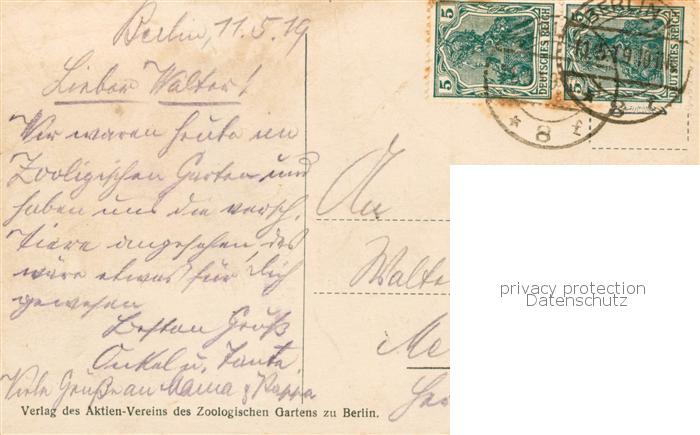 Berlin, 11.5.19
Lieber Walter!
Wir waren heute im
Zooligischen Garten und
haben uns die versch.
Tiere angesehen, das
wäre etwas für Dich
gewesen
Besten Gruß
Onkel u. Tante
Viele Grüße an Mama & Pappa
Verlag des Aktien-Vereins des Zoologischen Gartens zu Berlin.
5 DEUTSCHES REICH
5 DEUTSCHES REICH
BERLIN
* 8 f
* 8 f
An
Walte
Me
privacy protection
Datenschutz